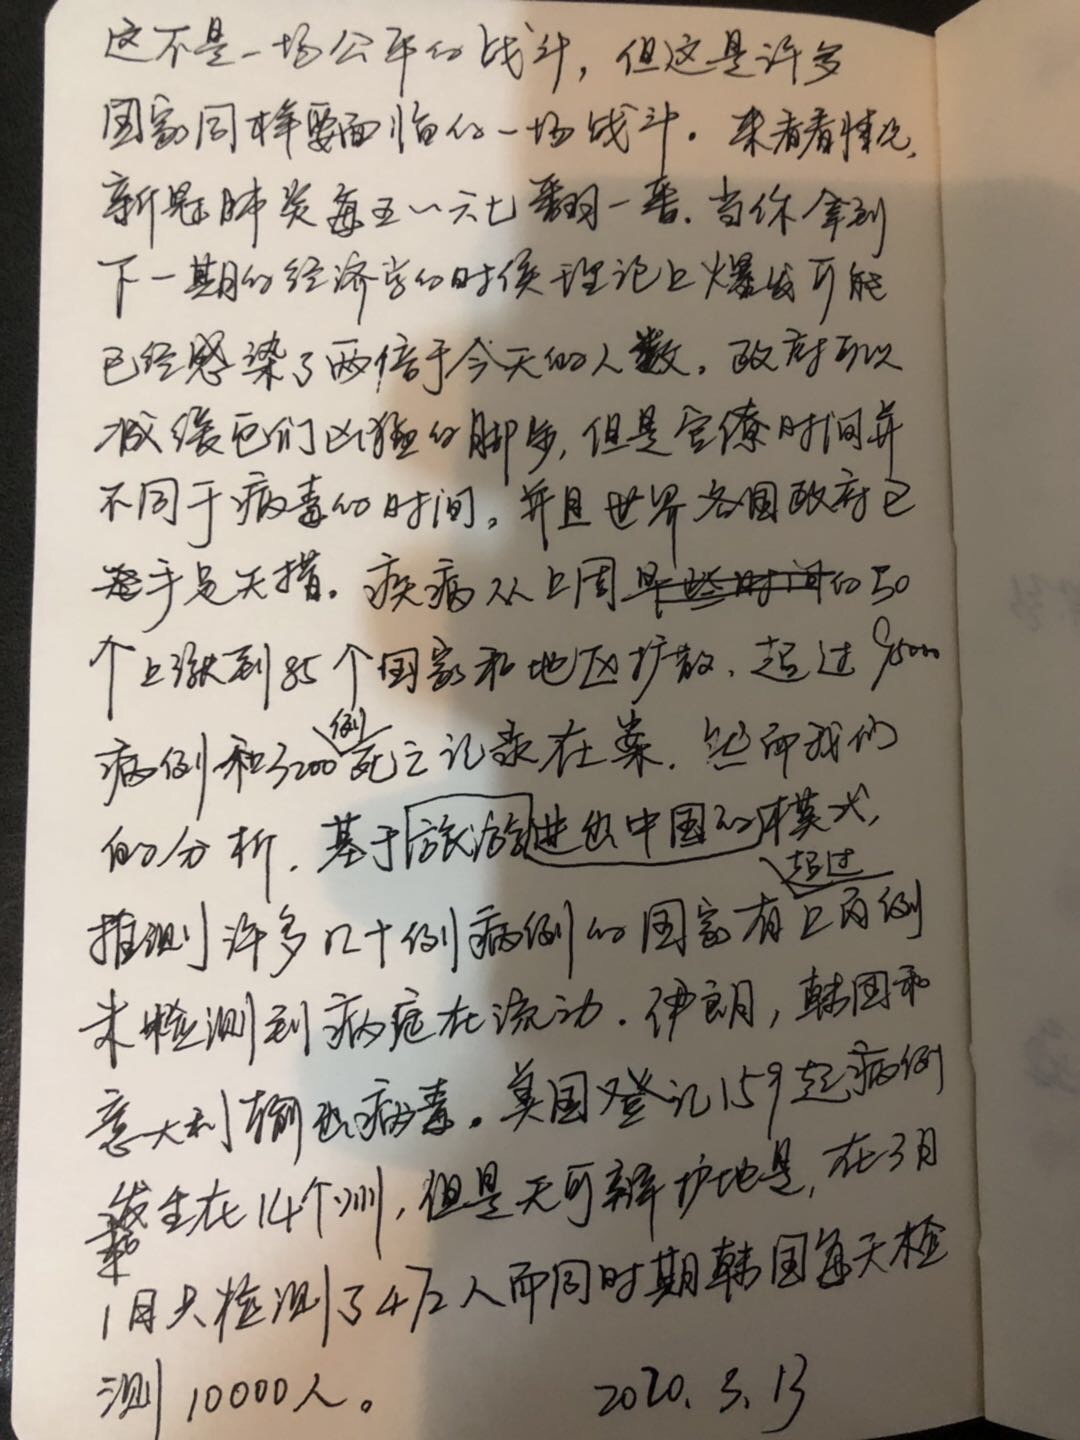 这不是一场公平的战斗，但这是许多
国家同样要面临的一场战斗。来看看情况，
新冠肺炎每五～六七翻一番．当你拿到
下一期的经济学的时候理论上爆发可能
已经感染了两倍于今天的人数。政府可以
减缓它们凶猛的脚步，但是官僚时间并
不同于病毒的时间。并且世界各国政府已
手足无措．疾病从上周的50
个上涨到85个国家和地区扩散．超过95000
病例和3200例死亡记录在案．然而我们
的分析．基于旅游进出中国的模式，
推测许多几十例病例的国家有超过上百例
未检测到病症在流动．伊朗，韩国和
意大利输出病毒。美国登记159起病例
发生在14个州，但是无可辩护地是，在3月
和
1月只检测了472人而同时期韩国每天检
测10000人。 2020．3．13